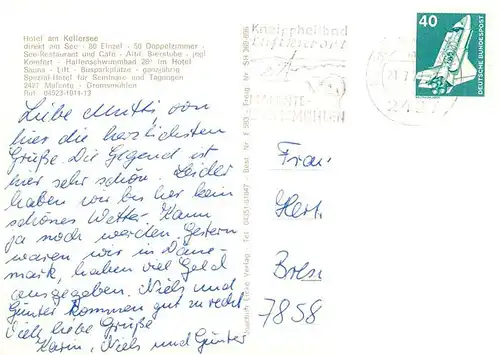 Hotel am Kellersee
direkt am See - 80 Einzel - 50 Doppelzimmer -
See-Restaurant und Café - Altd. Bierstube - jegl.
Komfort - Hallenschwimmbad 28° im Hotel
Sauna - Lift - Busparkplätze - ganzjährig
Spezial-Hotel für Seminare und Tagungen
2427 Malente - Gremsmühlen
Ruf 04523-1011-13
Liebe Mutti, von
hier die herzlichsten
Grüße. Die Gegend ist
hier sehr schön. Leider
haben wir bis her kein
schönes Wetter. Kann
ja noch werden. Gestern
waren wir in Däne-
mark, haben viel Geld
ausgegeben. Niels und
Günter kommen gut zu recht
Viele liebe Grüße
Karin, Niels und Günter
Verlag - Tel. 04351-81847 - Best. Nr. F 303 - Freig. Nr. SH 360-696
Kneippheilbad
Luftkurort
MALENTE-
GREMSMÜHLEN
40
DEUTSCHE BUNDESPOST
Frau
Bres
7858